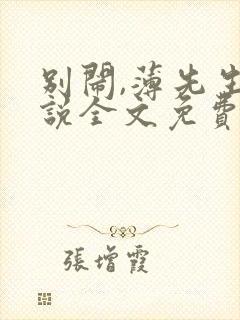 別鬧,薄先生
說全文免費
張增霞